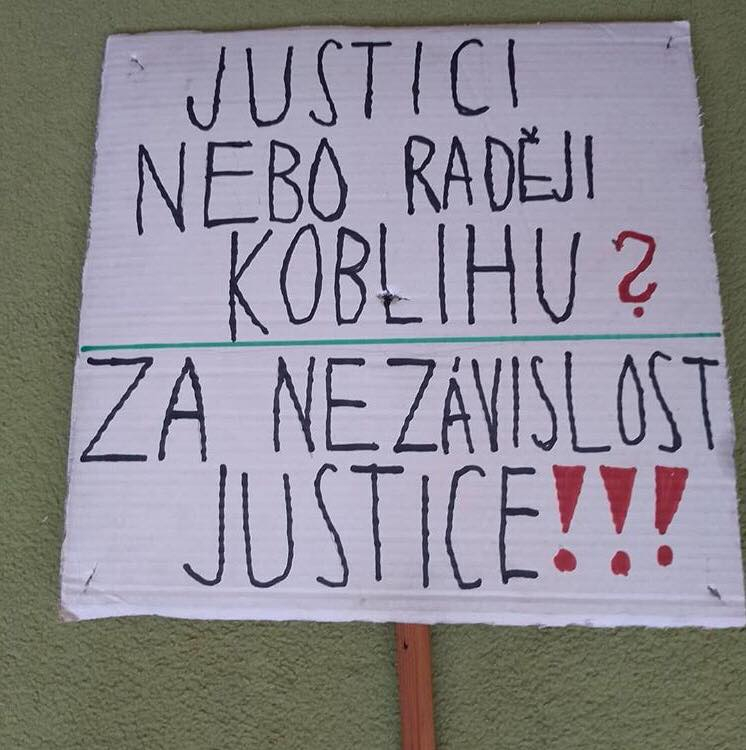 JUSTICI
NEBO RADĚJI
KOBLIHU?
ZA NEZÁVISLOST
JUSTICE!!!